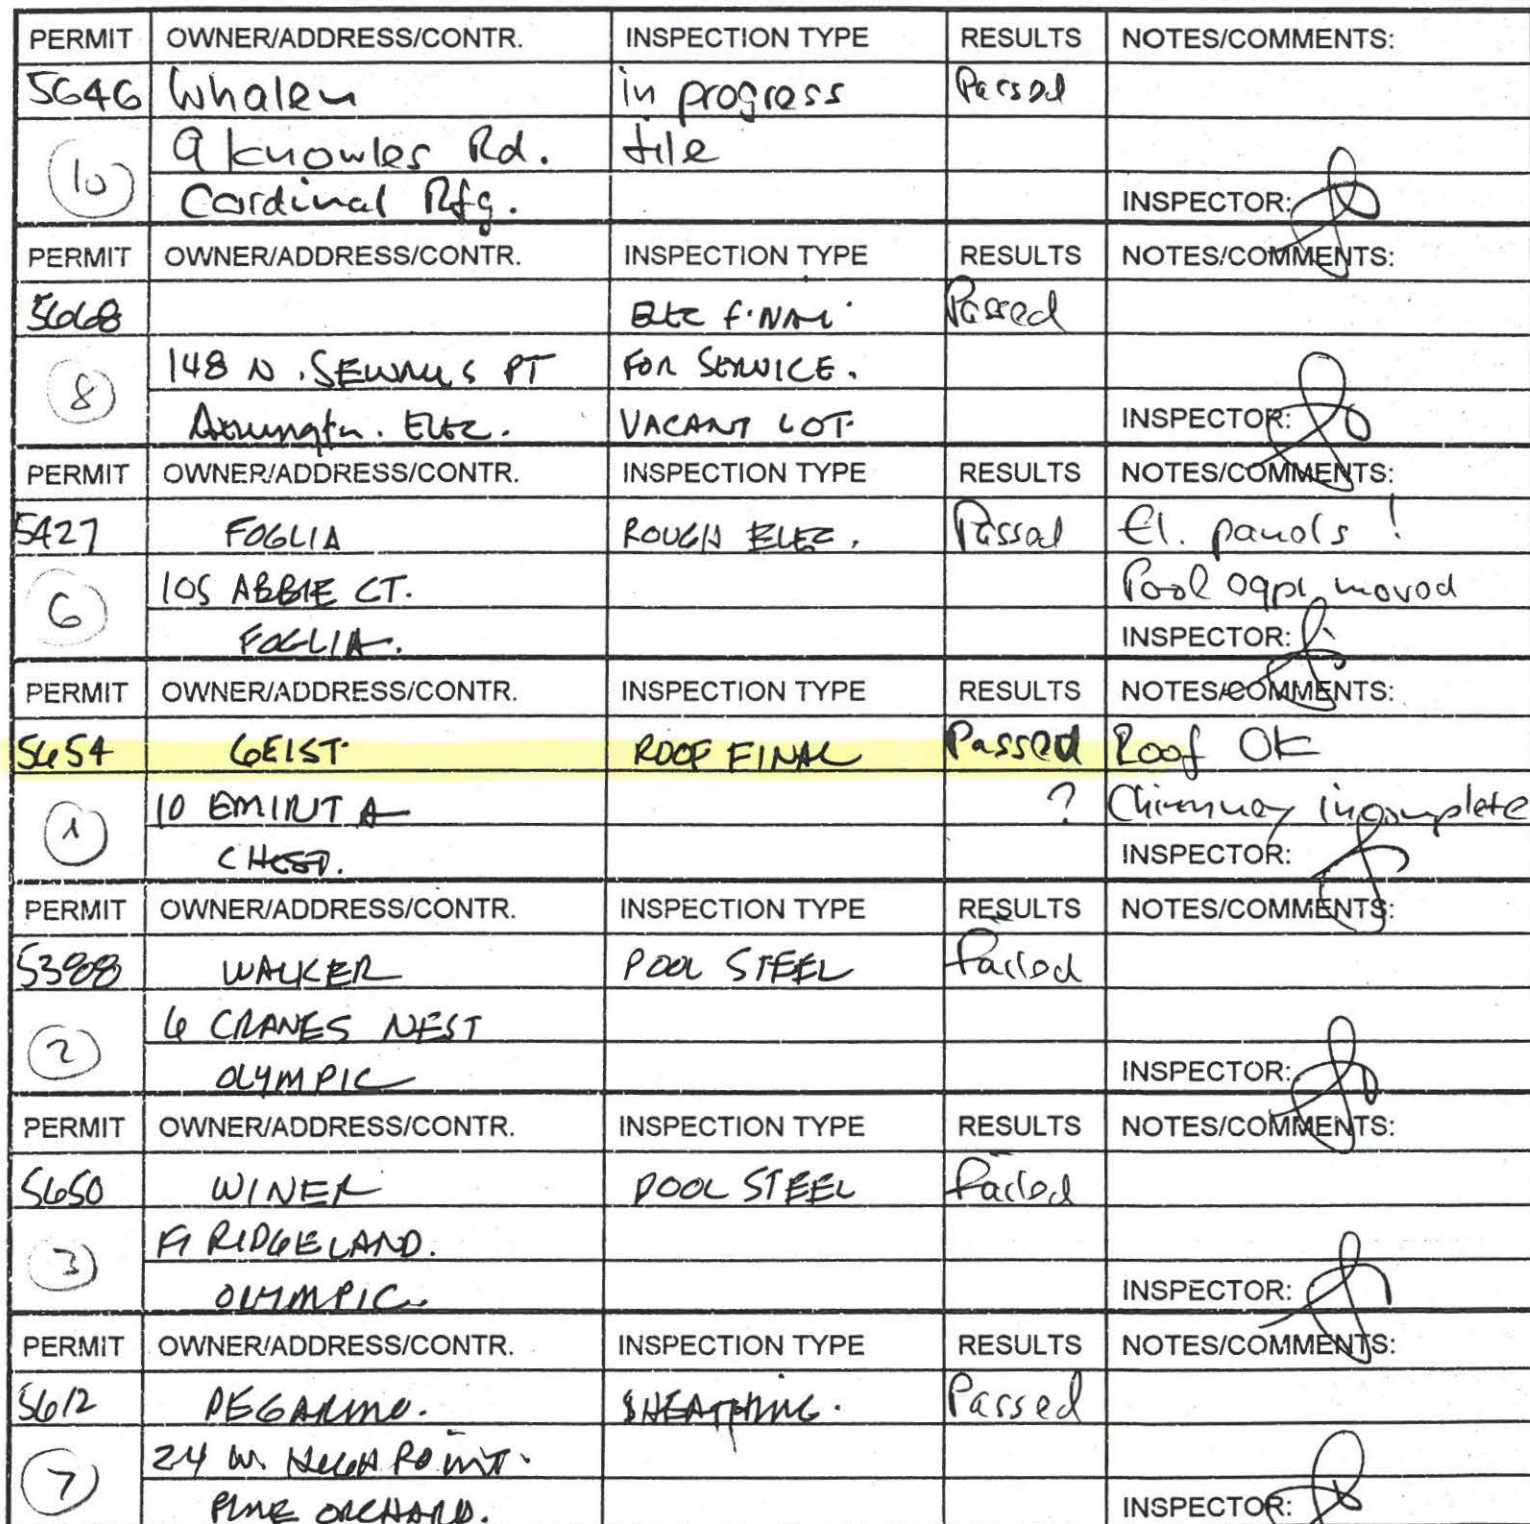 PERMIT OWNER/ADDRESS/CONTR. INSPECTION TYPE RESULTS NOTES/COMMENTS:
5646 Whalen in progress Passed
10 9 Knowles Rd. tile
Cardinal Rfg. INSPECTOR:
PERMIT OWNER/ADDRESS/CONTR. INSPECTION TYPE RESULTS NOTES/COMMENTS:
5668 ELEC FINAL Passed
8 148 N. SEWALLS PT FOR SERVICE.
ELEC. VACANT LOT. INSPECTOR:
PERMIT OWNER/ADDRESS/CONTR. INSPECTION TYPE RESULTS NOTES/COMMENTS:
5427 FOGLIA ROUGH ELEC. Passed El. panels !
6 105 ABBIE CT. Pool eqpt moved
FOGLIA. INSPECTOR:
PERMIT OWNER/ADDRESS/CONTR. INSPECTION TYPE RESULTS NOTES/COMMENTS:
5654 GEIST ROOF FINAL Passed Roof OK
1 10 ? Chimney incomplete
INSPECTOR:
PERMIT OWNER/ADDRESS/CONTR. INSPECTION TYPE RESULTS NOTES/COMMENTS:
WALKER POOL STEEL Failed
2 6 CRANES NEST
OLYMPIC INSPECTOR:
PERMIT OWNER/ADDRESS/CONTR. INSPECTION TYPE RESULTS NOTES/COMMENTS:
5650 WINER POOL STEEL Failed
3 RIDGELAND.
OLYMPIC INSPECTOR:
PERMIT OWNER/ADDRESS/CONTR. INSPECTION TYPE RESULTS NOTES/COMMENTS:
5612 DEGARMO. SHEATHING. Passed
7 24 W. HIGH POINT.
PINE ORCHARD. INSPECTOR: